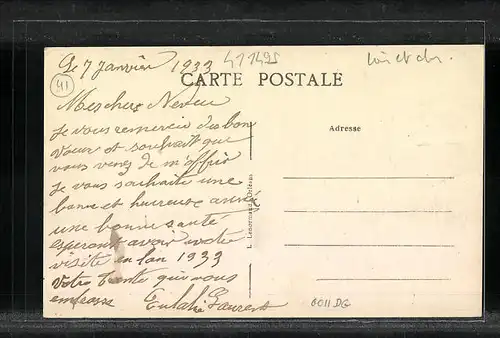 Le 7 Janvier 1933
41149S
Loir et cher.
41
CARTE POSTALE
Mes chers Neveu
Je vous remercie des bon
vœur et souhait que
vous venez de m'offrir
Je vous souhaite une
bonne et heureuse année
une bonne santé
esperant avoir votre
visite en l'an 1933
Votre tante qui vous
embrasse
Eulalie Laurent
Adresse
L. Lenormand, Orléans
6011 DG